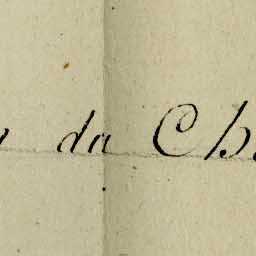 da Ch